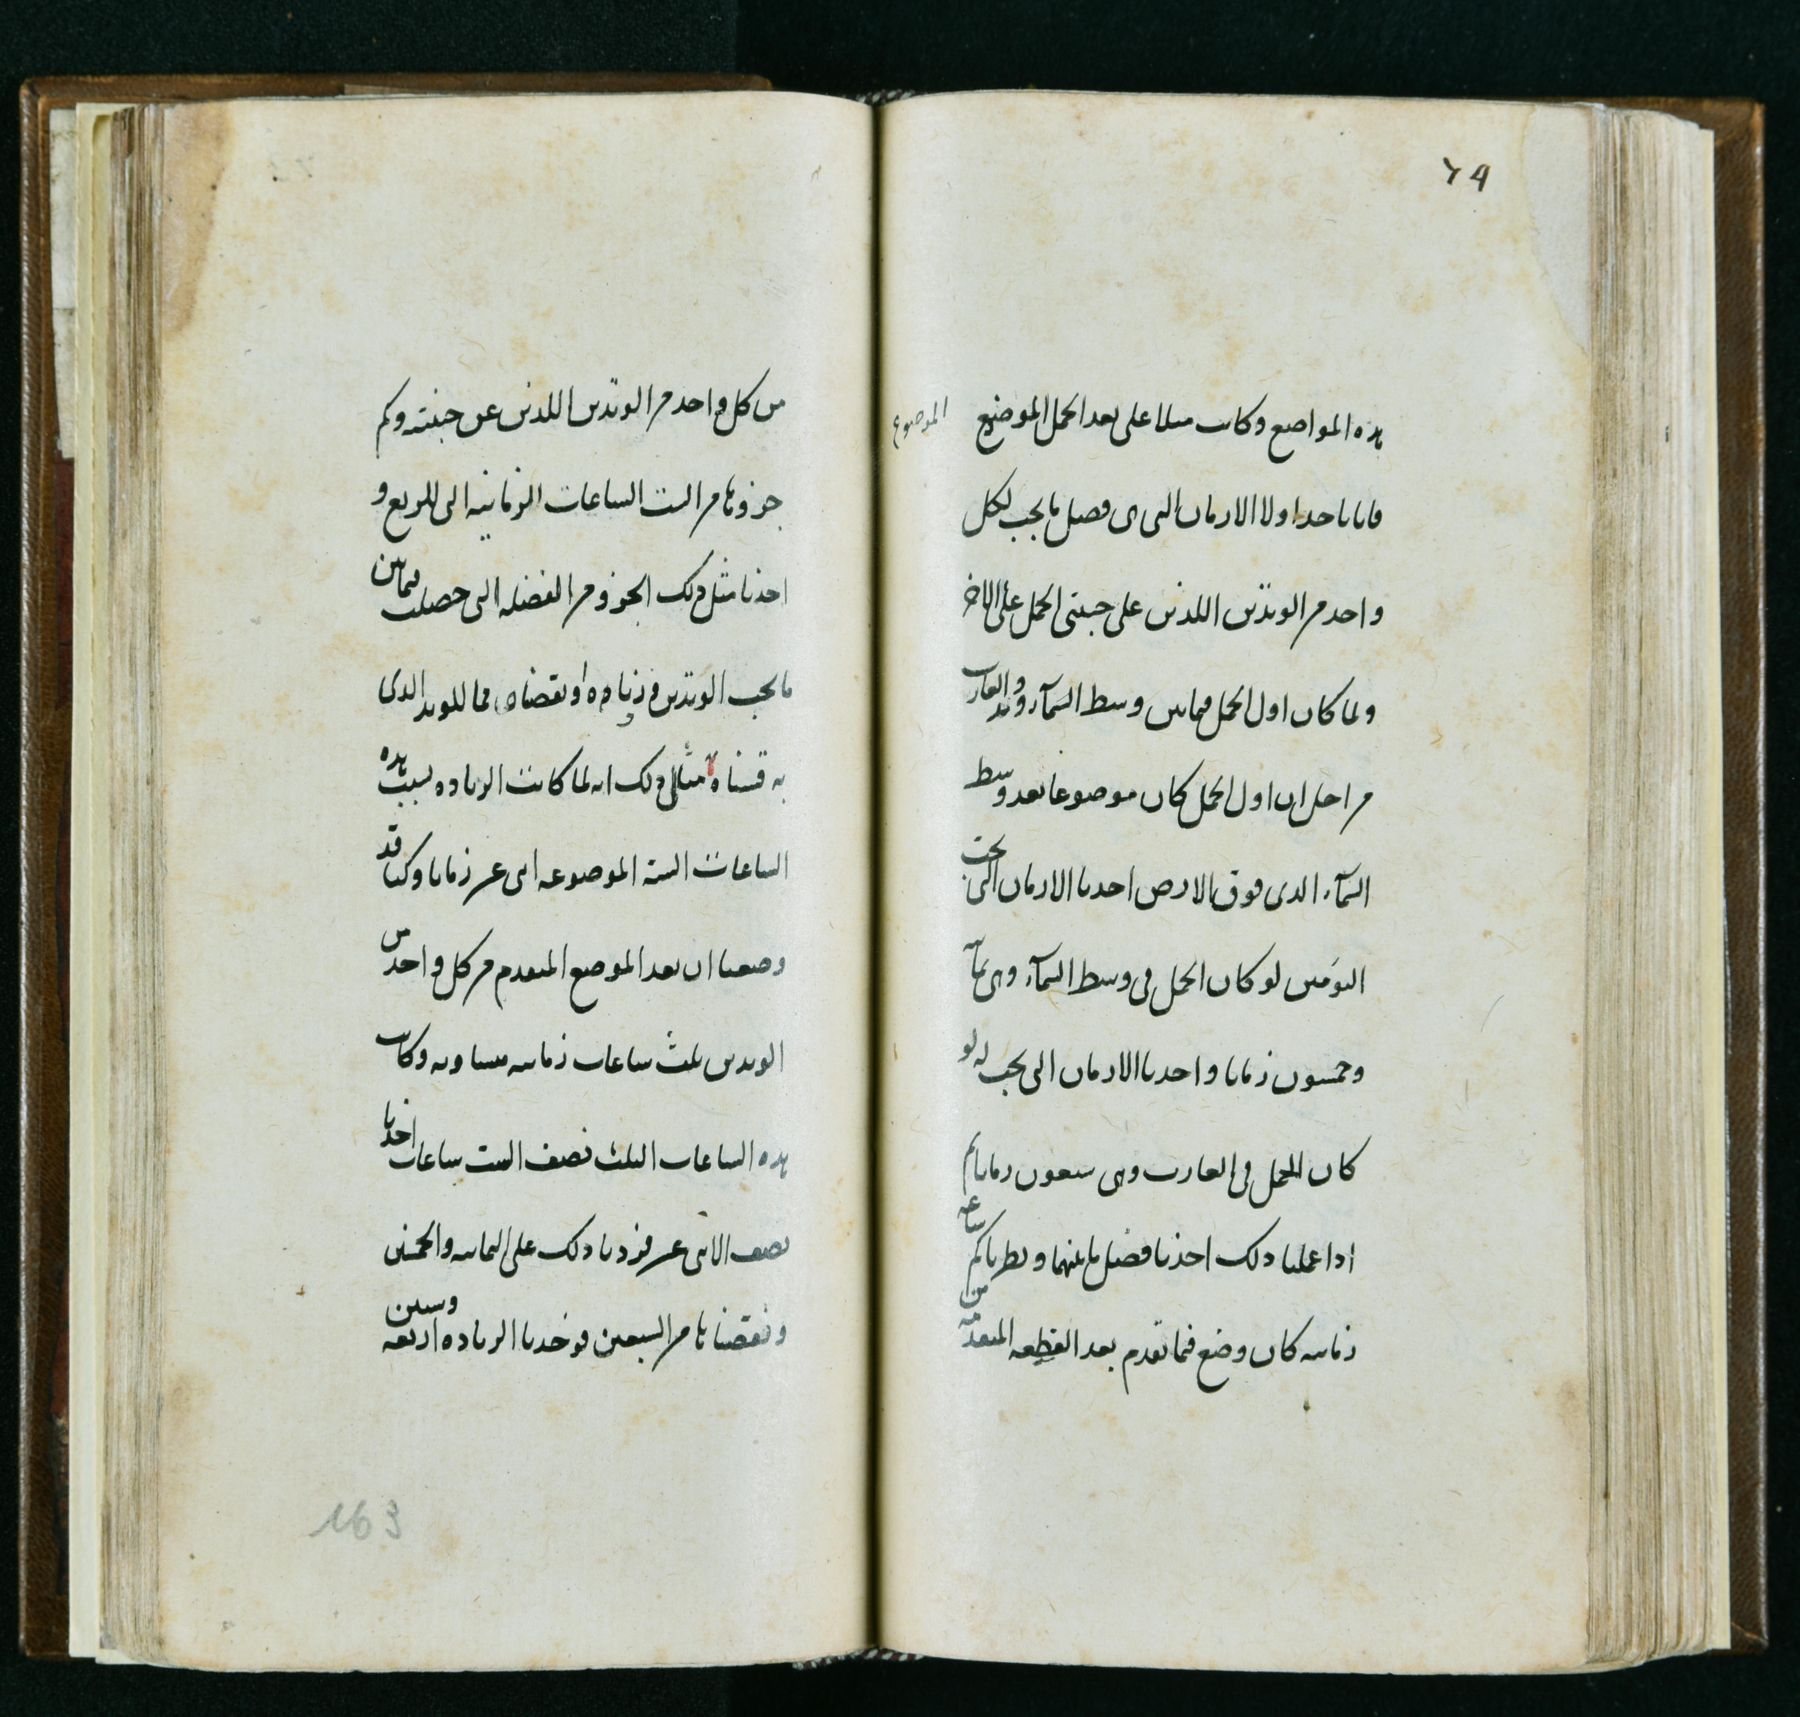 ٦٩
هذه المواضع وكانت مثلا على بعد الحمل الموضع
الموضوع
فانا ناخذ اولا الازمان التى هى فصل ما يجب لكل
واحد من الوتدين اللذين على جنبتى الحمل على الاخر
ولما كان اول الحمل فيما بين وسط السمآء ووتد الغارب
من اجل ان اول الحمل كان موضوعا بعد وسط
السمآء الذى فوق الارض اخذنا الازمان التى تحت
لو كان الحمل فى وسط السمآء وهى ثمآنيه
وخمسون زمانا واخذنا الازمان التى يجب له لو
كان الحمل فى الغارب وهى سبعون زمانا ثم
اذا عملنا ذلك اخذنا فضل ما بينهما ونظرنا كم ساعه
زمانيه كان وضع فيما تقدم بعد القطعه المتقدمه من
من كل واحد من الوتدين اللذين عن جنبته وكم
جزوها من الست الساعات الزمانيه التى للربع و
اخذنا مثل ذلك الجزو من الفضله التى حصلت فيما بين
ما يجب الوتدين وزياده او نقصناه مما للوتد الذى
به قسناه مثال ذلك انه لما كانت الزياده بسبب هذه
الساعات السته الموضوعه اثنى عشر زمانا وكنا قد
وضعنا ان بعد الموضع المتقدم من كل واحد من
الوتدين ثلث ساعات زمانيه متساويه وكانت
هذه الساعات الثلث نصف الست ساعات اخذنا
نصف الاثنى عشر فزدنا ذلك على الثمانيه والخمسين
ونقصناها من السبعين فوجدنا الزياده اربعه وستين
163